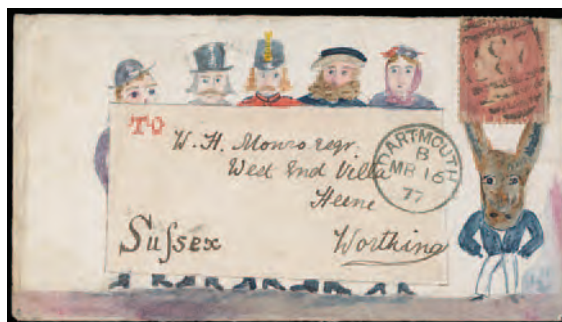 TO
W. H. Monro esqr.
West End Villa
Heene
Worthing
Suſsex
DARTMOUTH
B
MR 16
77